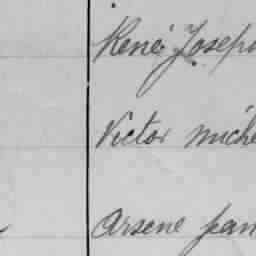 René Joseph
Victor Miche
Arsene Jean